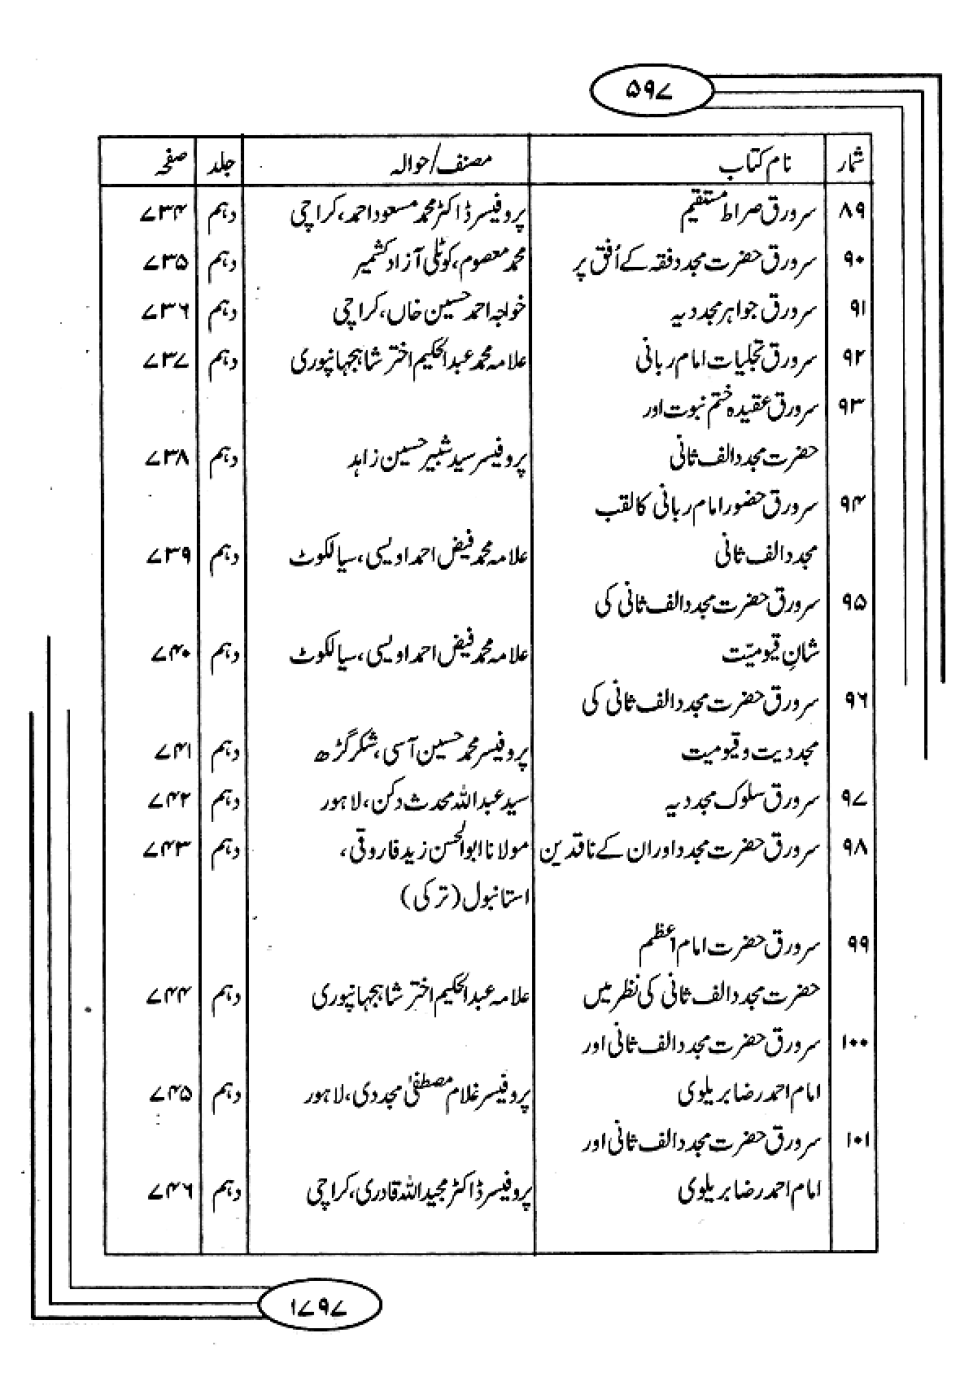 ۵۹۷
شمار نام کتاب مصنف/حوالہ جلد صفحہ
۸۹ سرورق صراط مستقیم پروفیسر ڈاکٹر محمد مسعود احمد، کراچی دہم ۷۳۴
۹۰ سرورق حضرت مجدد فقہ کے اُفق پر محمد معصوم، کوٹلی آزاد کشمیر دہم ۷۳۵
۹۱ سرورق جواہر مجددیہ خواجہ احمد حسین خاں، کراچی دہم ۷۳۶
۹۲ سرورق تجلیات امام ربانی علامہ محمد عبدالحکیم اختر شاہجہانپوری دہم ۷۳۷
۹۳ سرورق عقیدہ ختم نبوت اور
حضرت مجدد الف ثانی پروفیسر سید شبیر حسین زاہد دہم ۷۳۸
۹۴ سرورق حضور امام ربانی کا لقب
مجدد الف ثانی علامہ محمد فیض احمد اویسی، سیالکوٹ دہم ۷۳۹
۹۵ سرورق حضرت مجدد الف ثانی کی
شانِ قیومیّت علامہ محمد فیض احمد اویسی، سیالکوٹ دہم ۷۴۰
۹۶ سرورق حضرت مجدد الف ثانی کی
مجددیت و قیومیت پروفیسر محمد حسین آسی، شکرگڑھ دہم ۷۴۱
۹۷ سرورق سلوک مجددیہ سید عبداللہ محدث دکن، لاہور دہم ۷۴۲
۹۸ سرورق حضرت مجدد اور ان کے ناقدین مولانا ابوالحسن زید فاروقی، دہم ۷۴۳
استانبول (ترکی)
۹۹ سرورق حضرت امام اعظم
حضرت مجدد الف ثانی کی نظر میں علامہ عبدالحکیم اختر شاہجہانپوری دہم ۷۴۴
۱۰۰ سرورق حضرت مجدد الف ثانی اور
امام احمد رضا بریلوی پروفیسر غلام مصطفیٰ مجددی، لاہور دہم ۷۴۵
۱۰۱ سرورق حضرت مجدد الف ثانی اور
امام احمد رضا بریلوی پروفیسر ڈاکٹر مجید اللہ قادری، کراچی دہم ۷۴۶
۱۷۹۷